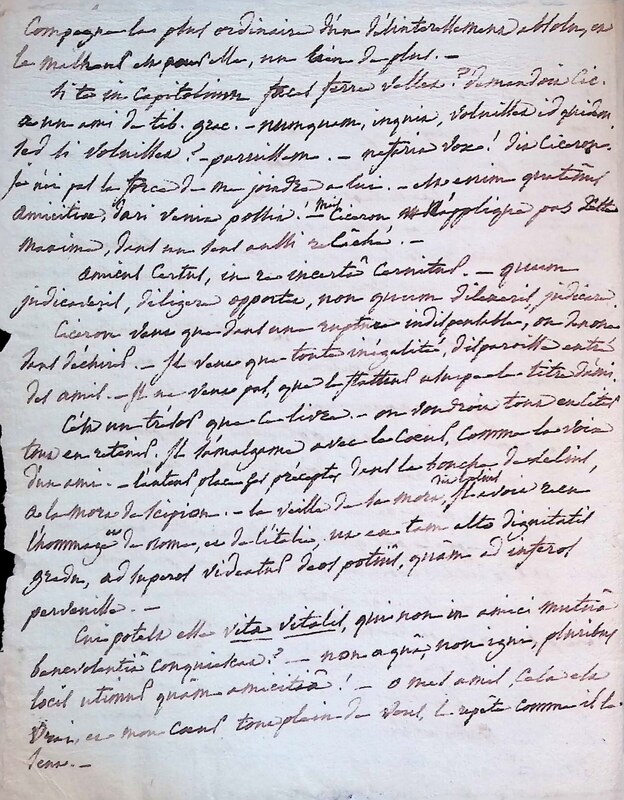 Compagne la plus ordinaire d'un désintéressement absolu, est
le malheur est pour elle, un lien de plus. —
Si te in Capitolium faces ferre vellet? demandoit Cic.
a un ami de tib. grac. — nunquam, inquit, voluisset id quidem
sed si voluisset? — paruissem. — nefaria vox! dit Ciceron.
Je n'ai pas la force de me joindre a lui. — est enim quatenus
amicitiae, dari venia possit! — mais Ciceron n'applique pas cette
maxime, dans un sens aussi relâché. —
amicus Certus, in re incertâ Cernitur. — quum
judicaveris, diligere oportet, non quum dilexeris, judicare.
Ciceron veut que dans une rupture indispensable, on denoue
sans déchirer. — Il veut que toute inégalité, disparoisse entre
des amis. — Il ne veut pas, que le flatteur usurpe le titre d'ami.
C'est un trésor que ce livre. — on voudroit tout en citer
tout en retenir. Il s'amalgame avec le Coeur, comme la voix
d'un ami. — l'auteur place ses préceptes dans la bouche de Lelius,
a la mort de Scipion. — la veille de sa mort, dit Lelius, Il avoit reçu
l'hommage de rome, et de l'italie, ut ex tam alto dignitatis
gradu, ad superos videatur deos potiùs, quàm ad inferos
pervenisse. —
Cui potest esse vita vitalis, qui non in amici mutuâ
benevolentiâ Conquiescat? — non aquâ, non igni, pluribus
locis utimur quàm amicitiâ! — o mes amis, Cela est
vrai, et mon Coeur tout plein de vous, le repète comme il le
sent. —